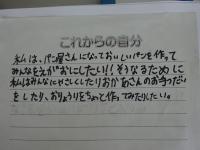 これからの自分
私は、パン屋さんになっておいしいパンを作って
みんなをえがおにしたい!!そうなるために
私はみんなにやさしくしたりおかあさんのお手つだい
をしたり、おりょうりをちょっと作ってみたりしたい。